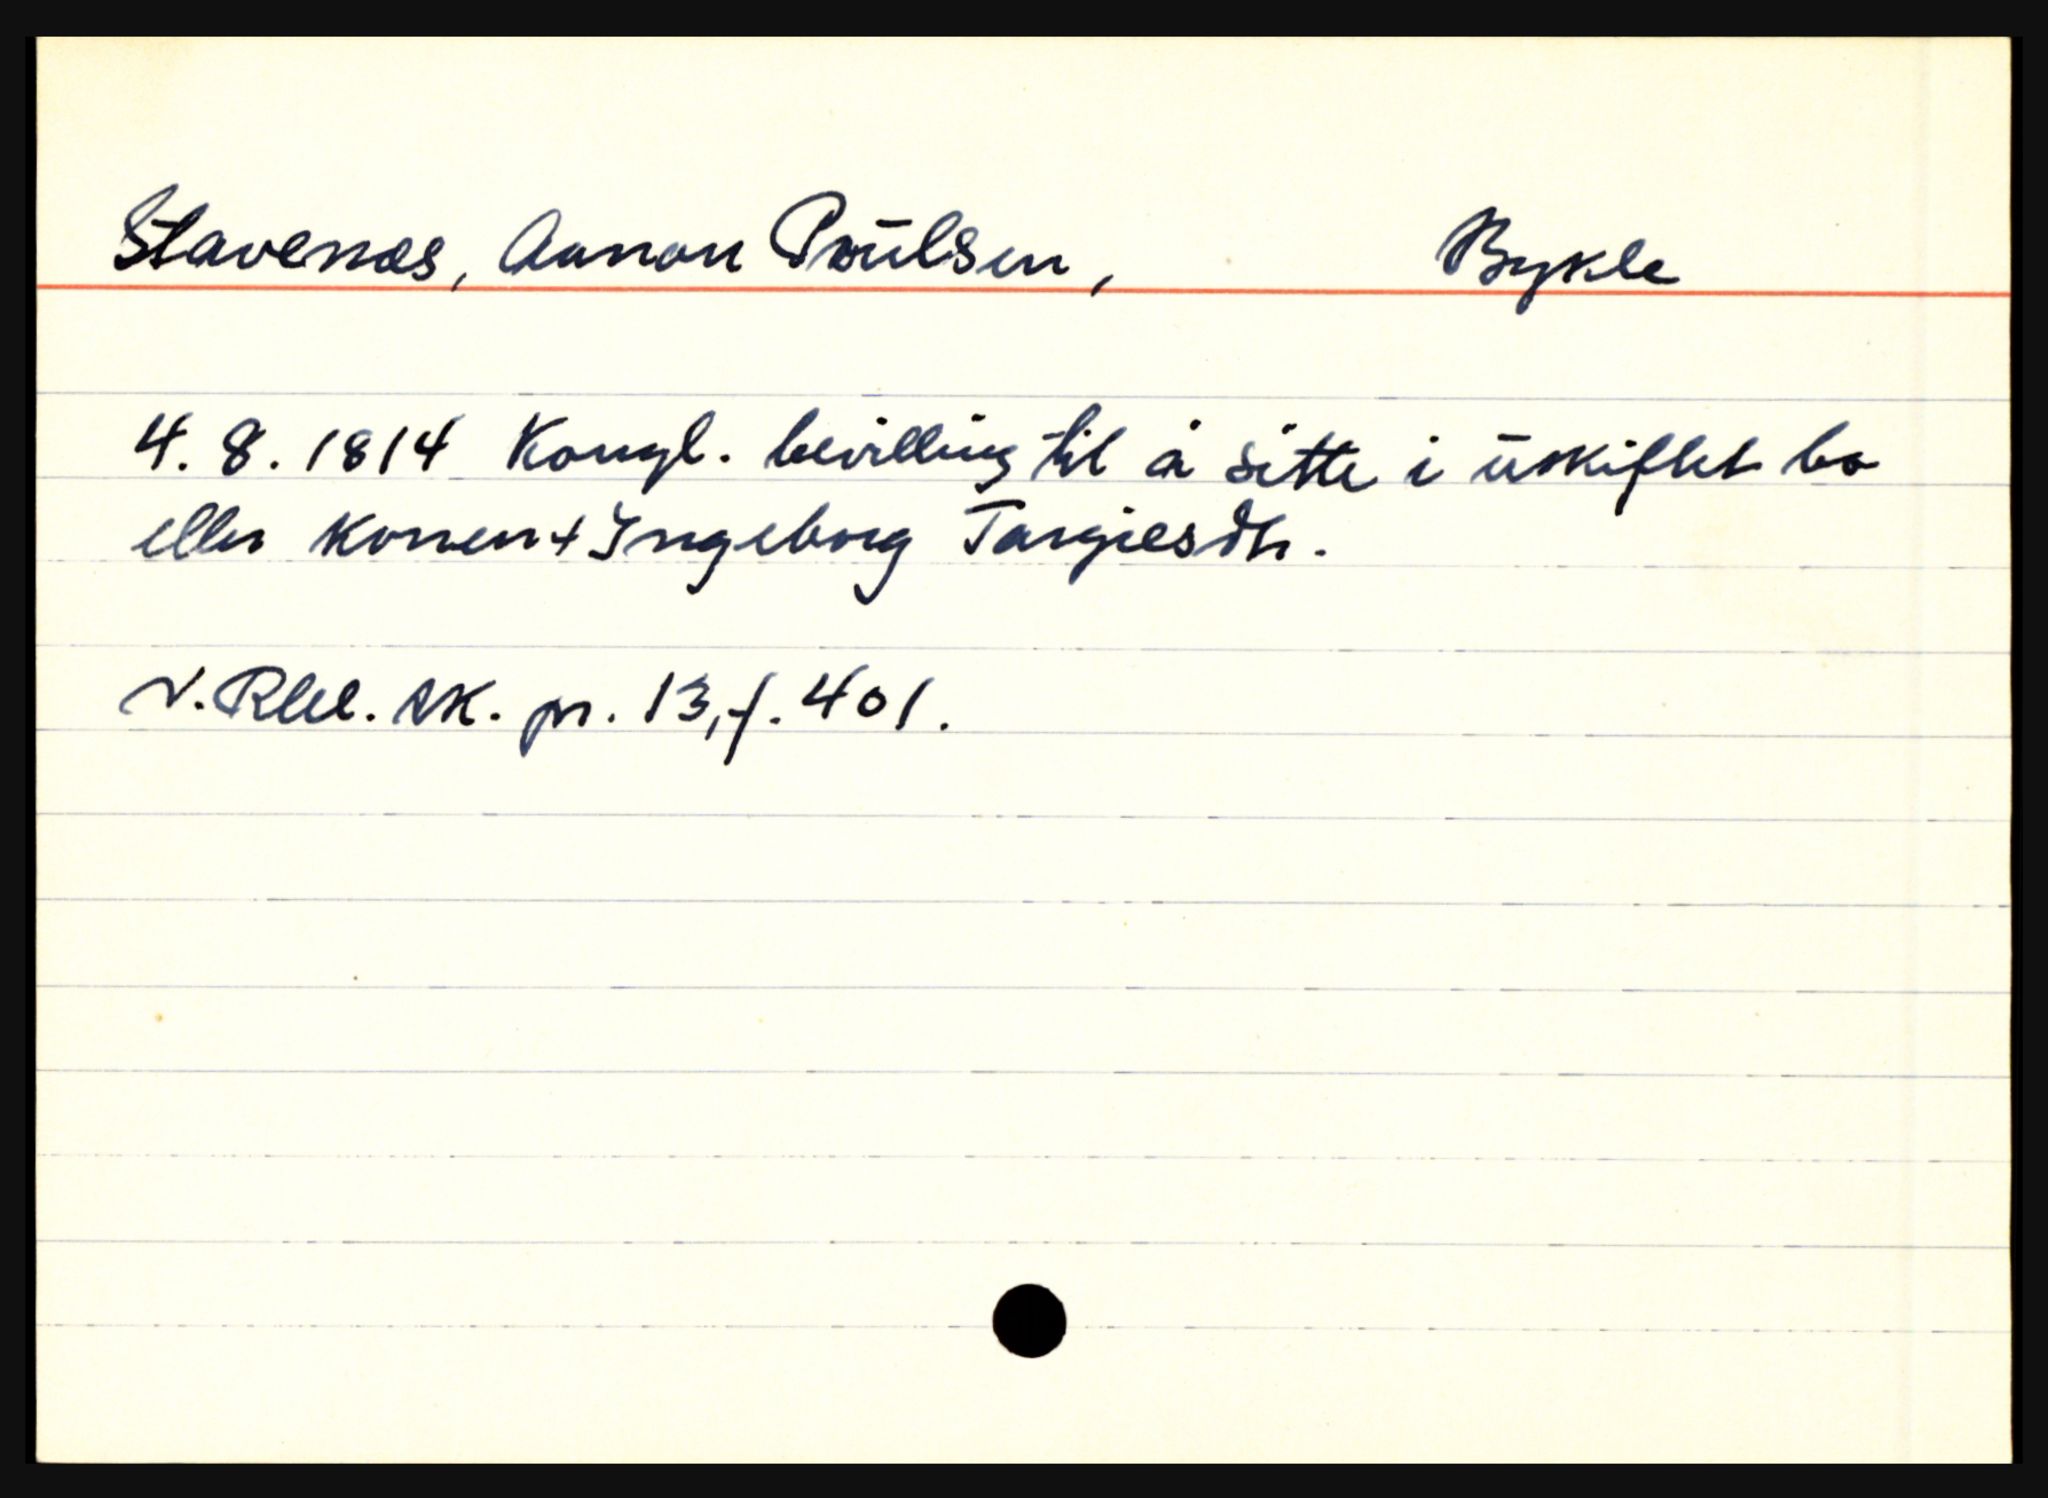 Stavenæs, Aanon Poulsen, Bykle
4. 8. 1814 Kongl. bevilling til å sitte i uskiftet bo
etter konen + Ingeborg Targiesdtr.
N. Rbll. sk. pr. 13, f. 401.